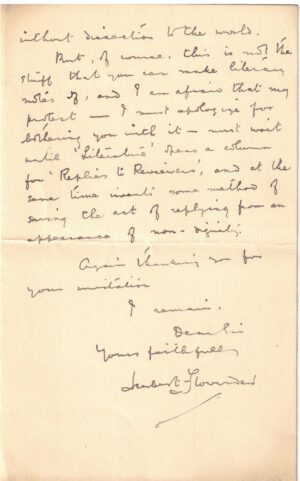 without dissection to the world.
But, of course, this is not the
stuff that you can make literary
notes of, and I am afraid that my
protest — I must apologize for
bothering you with it — must wait
until 'Literature' opens a column
for 'Replies to Reviewers', and at the
same time invents some method of
saving the act of replying from an
appearance of non-dignity.
Again thanking you for
your invitation
I remain.
Dear Sir
Yours faithfully
Herbert Flowerdew